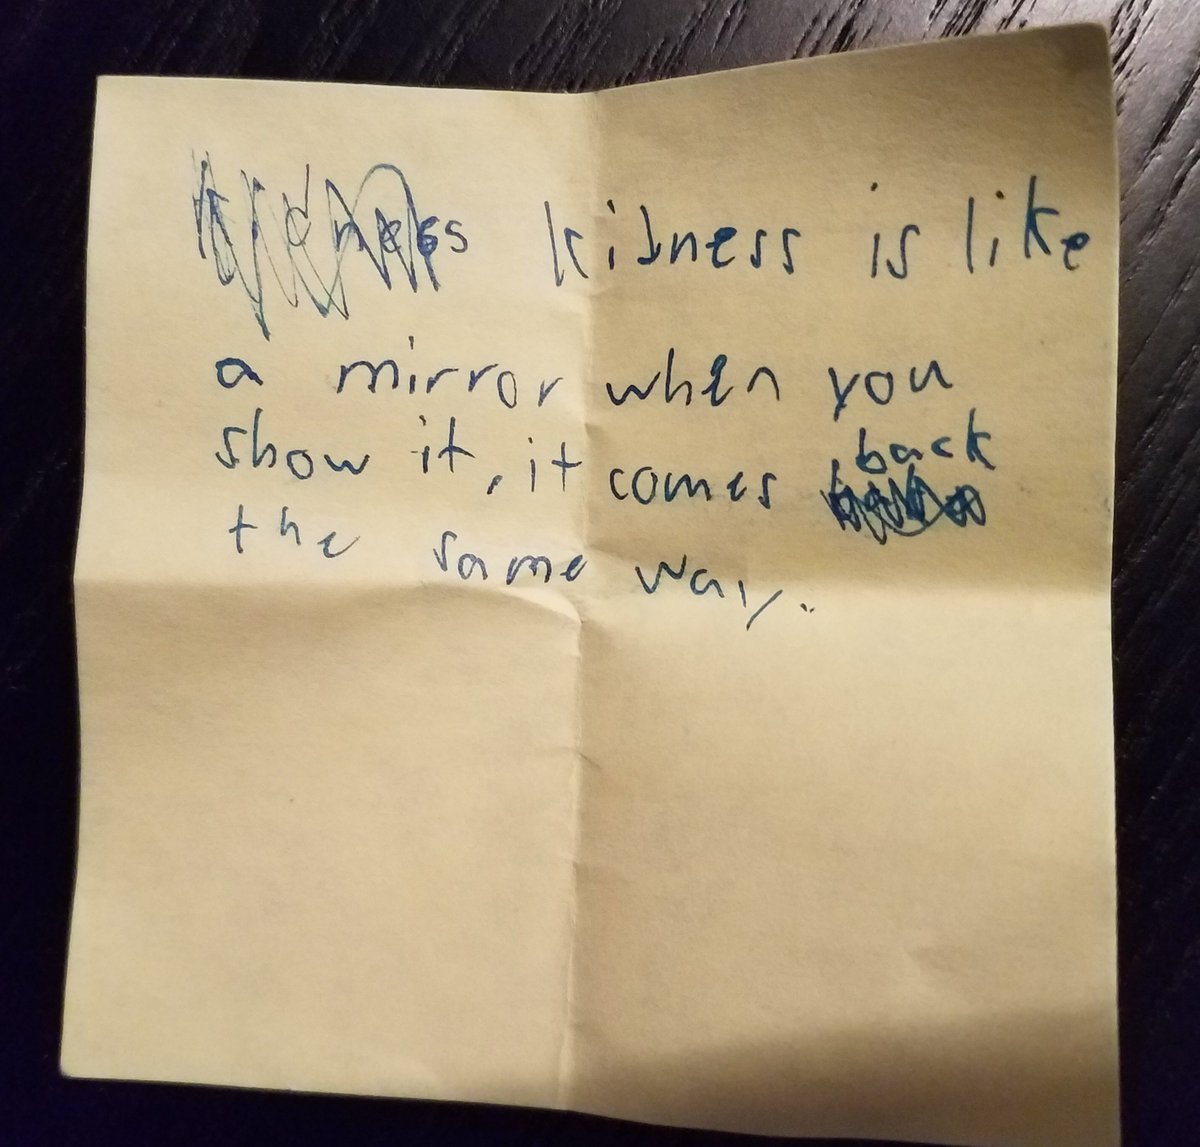 kidness is like
a mirror when you
show it, it comes back
the same way.